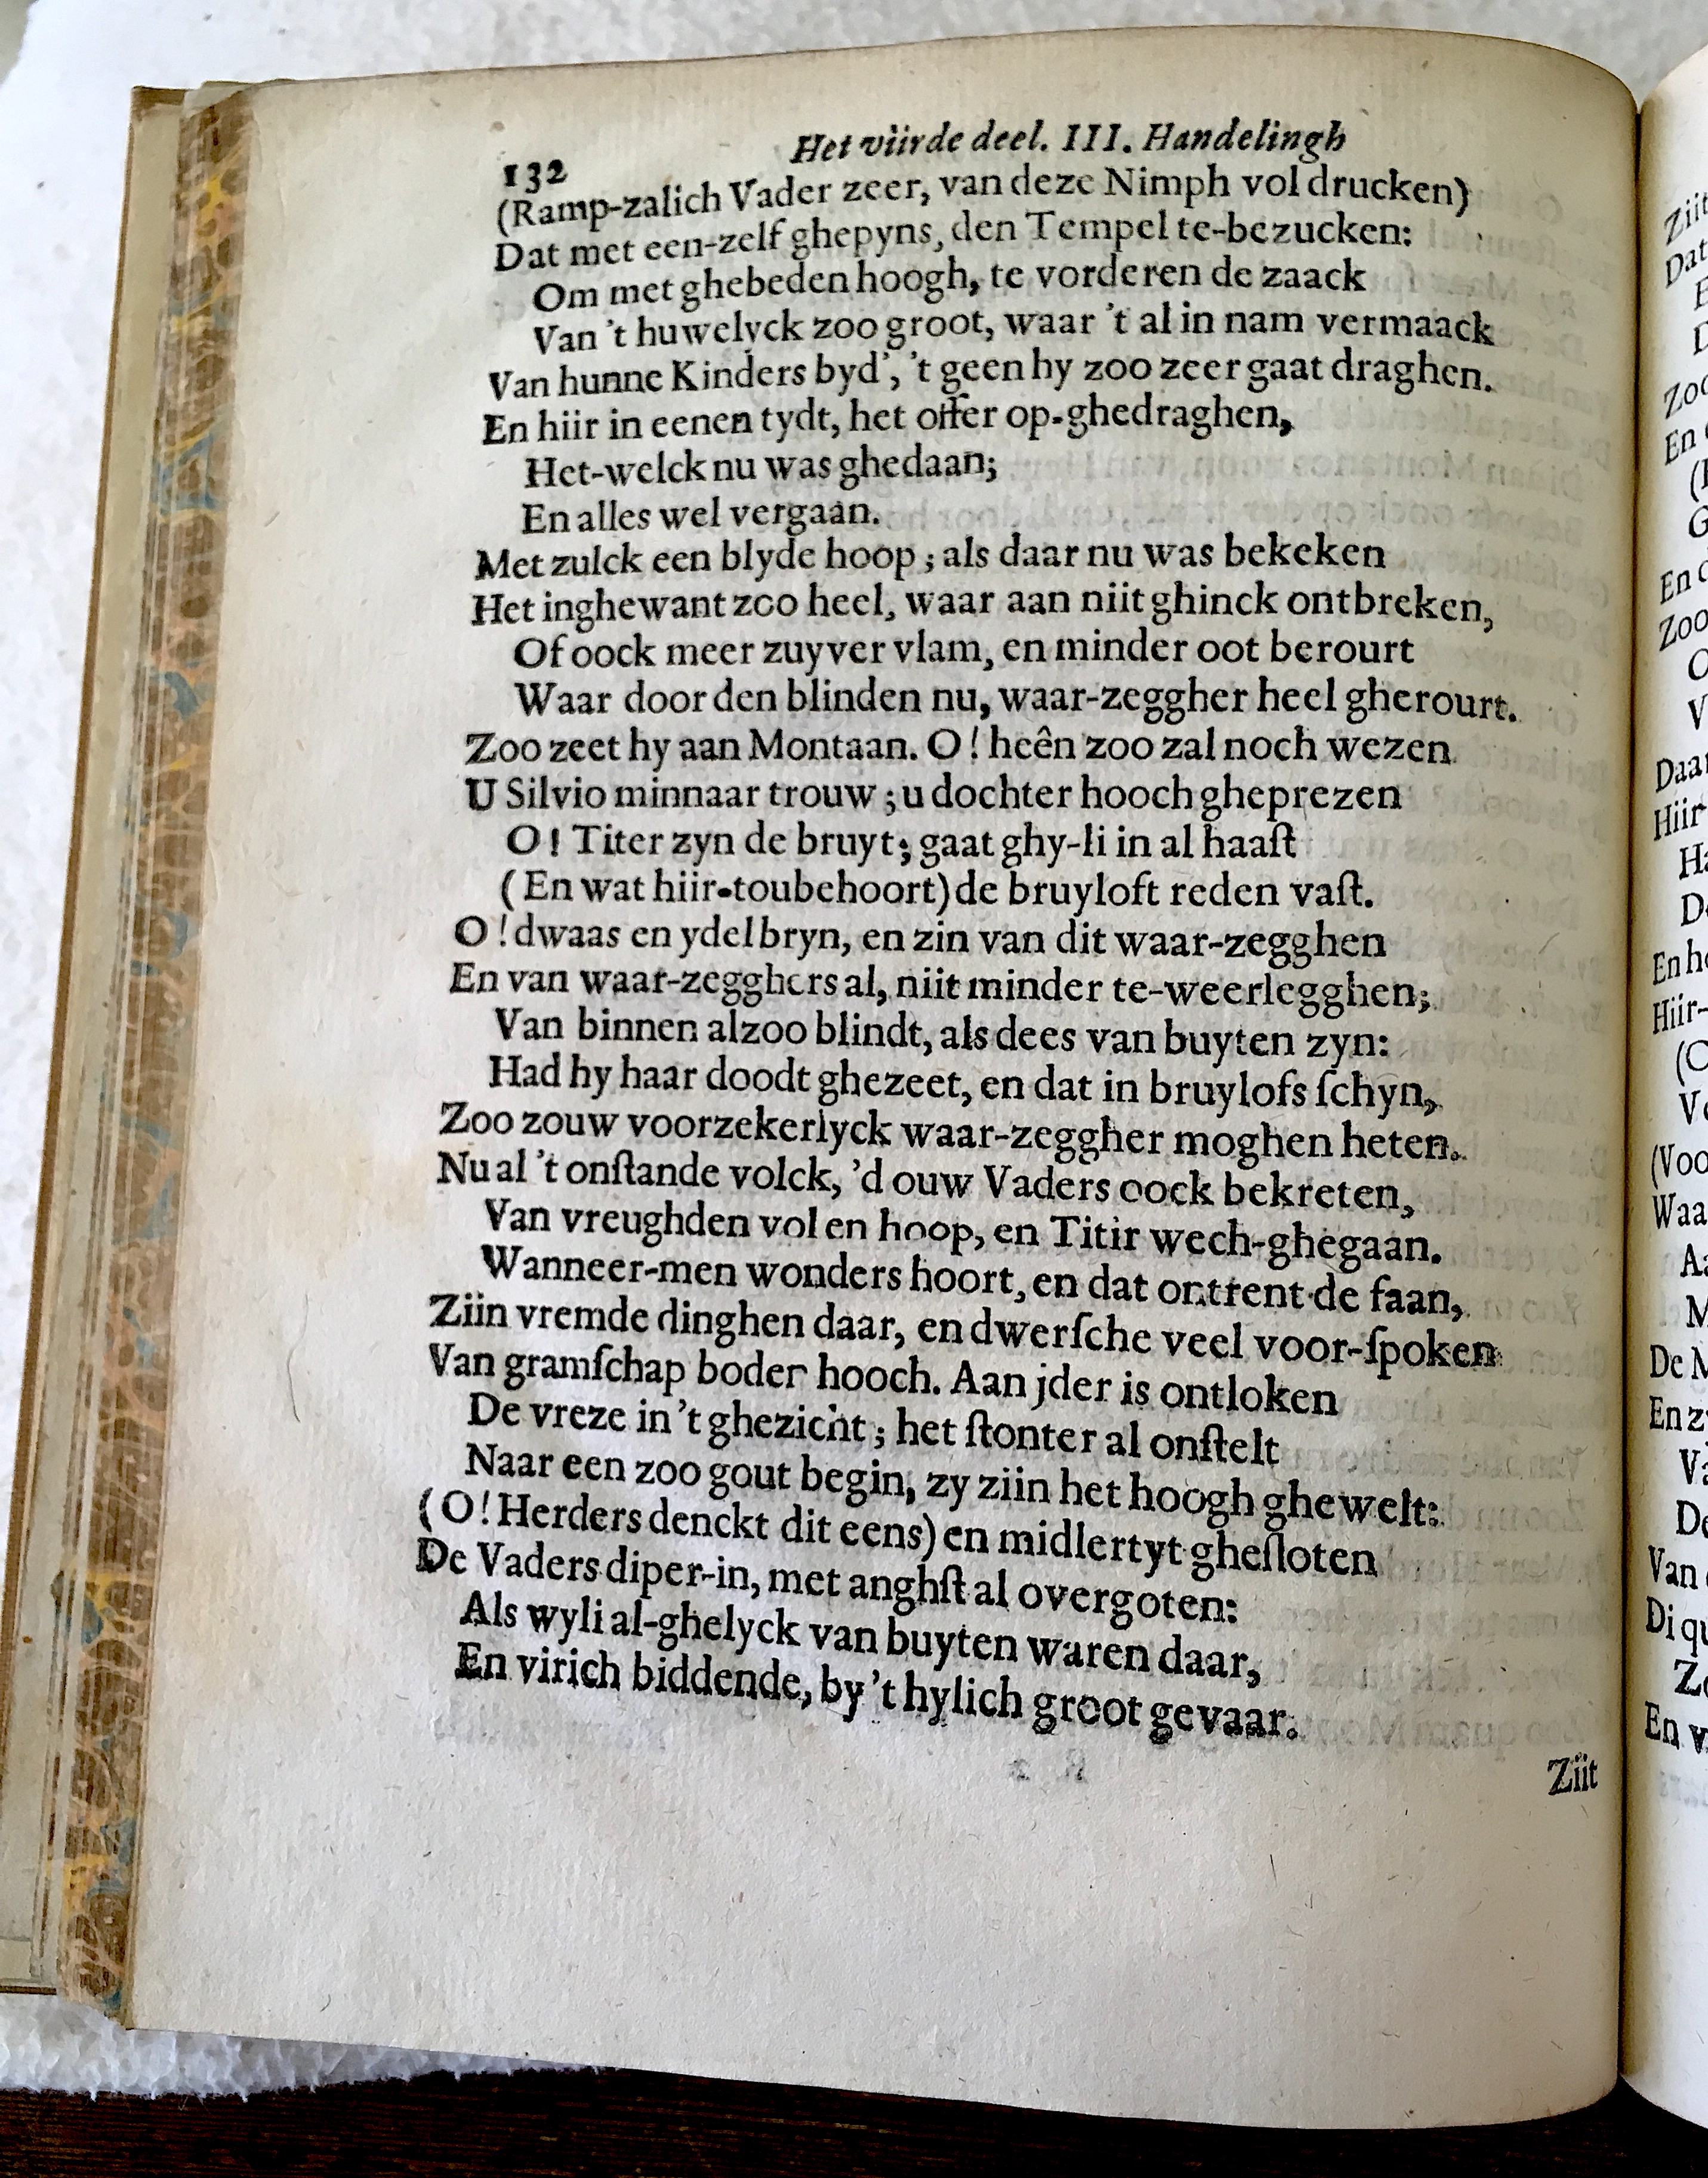 Het viirde deel. III. Handelingh
132
(Ramp-zalich Vader zeer, van deze Nimph vol drucken)
Dat met een-zelf ghepyns, den Tempel te-bezucken:
Om met ghebeden hoogh, te vorderen de zaack
Van 't huwelyck zoo groot, waar 't al in nam vermaack
Van hunne Kinders byd', 't geen hy zoo zeer gaat draghen.
En hiir in eenen tydt, het offer op-ghedraghen,
Het-welck nu was ghedaan;
En alles wel vergaan.
Met zulck een blyde hoop; als daar nu was bekeken
Het inghewant zoo heel, waar aan niit ghinck ontbreken,
Of oock meer zuyver vlam, en minder oot berourt
Waar door den blinden nu, waar-zeggher heel gherourt.
Zoo zeet hy aan Montaan. O! heên zoo zal noch wezen
U Silvio minnaar trouw; u dochter hooch gheprezen
O! Titer zyn de bruyt; gaat ghy-li in al haaſt
(En wat hiir-toubehoort) de bruyloft reden vaſt.
O! dwaas en ydel bryn, en zin van dit waar-zegghen
En van waar-zegghers al, niit minder te-weerlegghen;
Van binnen alzoo blindt, als dees van buyten zyn:
Had hy haar doodt ghezeet, en dat in bruylofs ſchyn,
Zoo zouw voorzekerlyck waar-zeggher moghen heten.
Nu al 't onſtande volck, 'd ouw Vaders oock bekreten,
Van vreughden vol en hoop, en Titir wech-ghegaan.
Wanneer-men wonders hoort, en dat ontrent de faan,
Ziin vremde dinghen daar, en dwerſche veel voor-ſpoken
Van gramſchap boden hooch. Aan jder is ontloken
De vreze in 't ghezicht; het ſtonter al onſtelt
Naar een zoo gout begin, zy ziin het hoogh ghewelt:
(O! Herders denckt dit eens) en midlertyt gheſloten
De Vaders diper-in, met anghſt al overgoten:
Als wyli al-ghelyck van buyten waren daar,
En virich biddende, by 't hylich groot gevaar.
Ziit